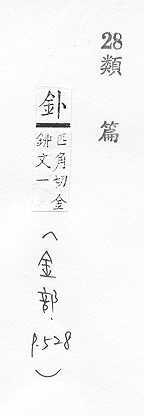 28
類篇
釙
匹角切金
文一
(金部.
p.528
)